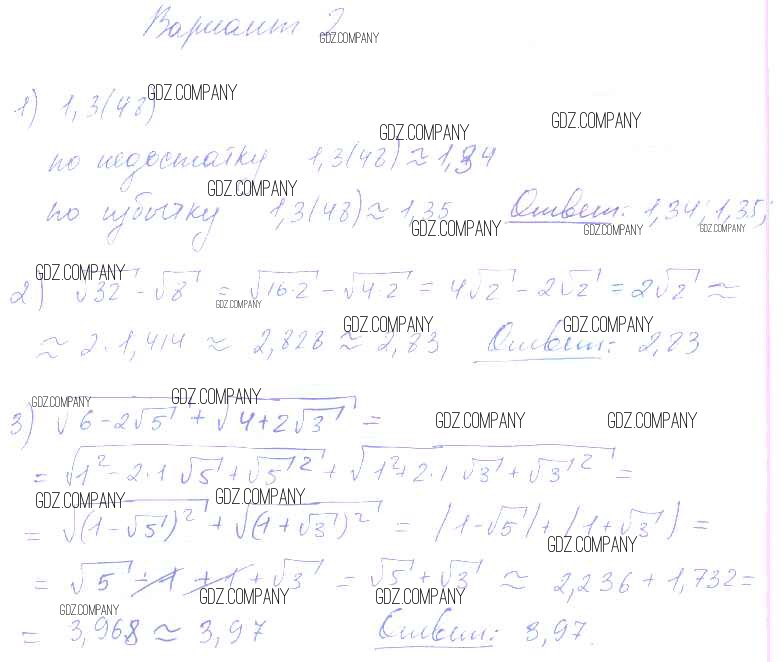 Вариант 2
GDZ.COMPANY
1) 1,3(48)
GDZ.COMPANY
GDZ.COMPANY
GDZ.COMPANY
по недостатку 1,3(48) ≈ 1,34
GDZ.COMPANY
по избытку 1,3(48) ≈ 1,35 Ответ: 1,34; 1,35;
GDZ.COMPANY GDZ.COMPANY GDZ.COMPANY
GDZ.COMPANY
2) √32 - √8 = √16·2 - √4·2 = 4√2 - 2√2 = 2√2 ≈
GDZ.COMPANY
GDZ.COMPANY GDZ.COMPANY
≈ 2·1,414 ≈ 2,828 ≈ 2,83 Ответ: 2,83
GDZ.COMPANY GDZ.COMPANY
3) √6-2√5 + √4+2√3 =
GDZ.COMPANY GDZ.COMPANY
= √1²-2·1 √5+√5² + √1²+2·1 √3+√3² =
GDZ.COMPANY GDZ.COMPANY
= √(1-√5)² + √(1+√3)² = |1-√5|+|1+√3| =
GDZ.COMPANY
= √5 - 1 + 1 + √3 = √5 + √3 ≈ 2,236 + 1,732 =
GDZ.COMPANY GDZ.COMPANY GDZ.COMPANY
= 3,968 ≈ 3,97 Ответ: 3,97.